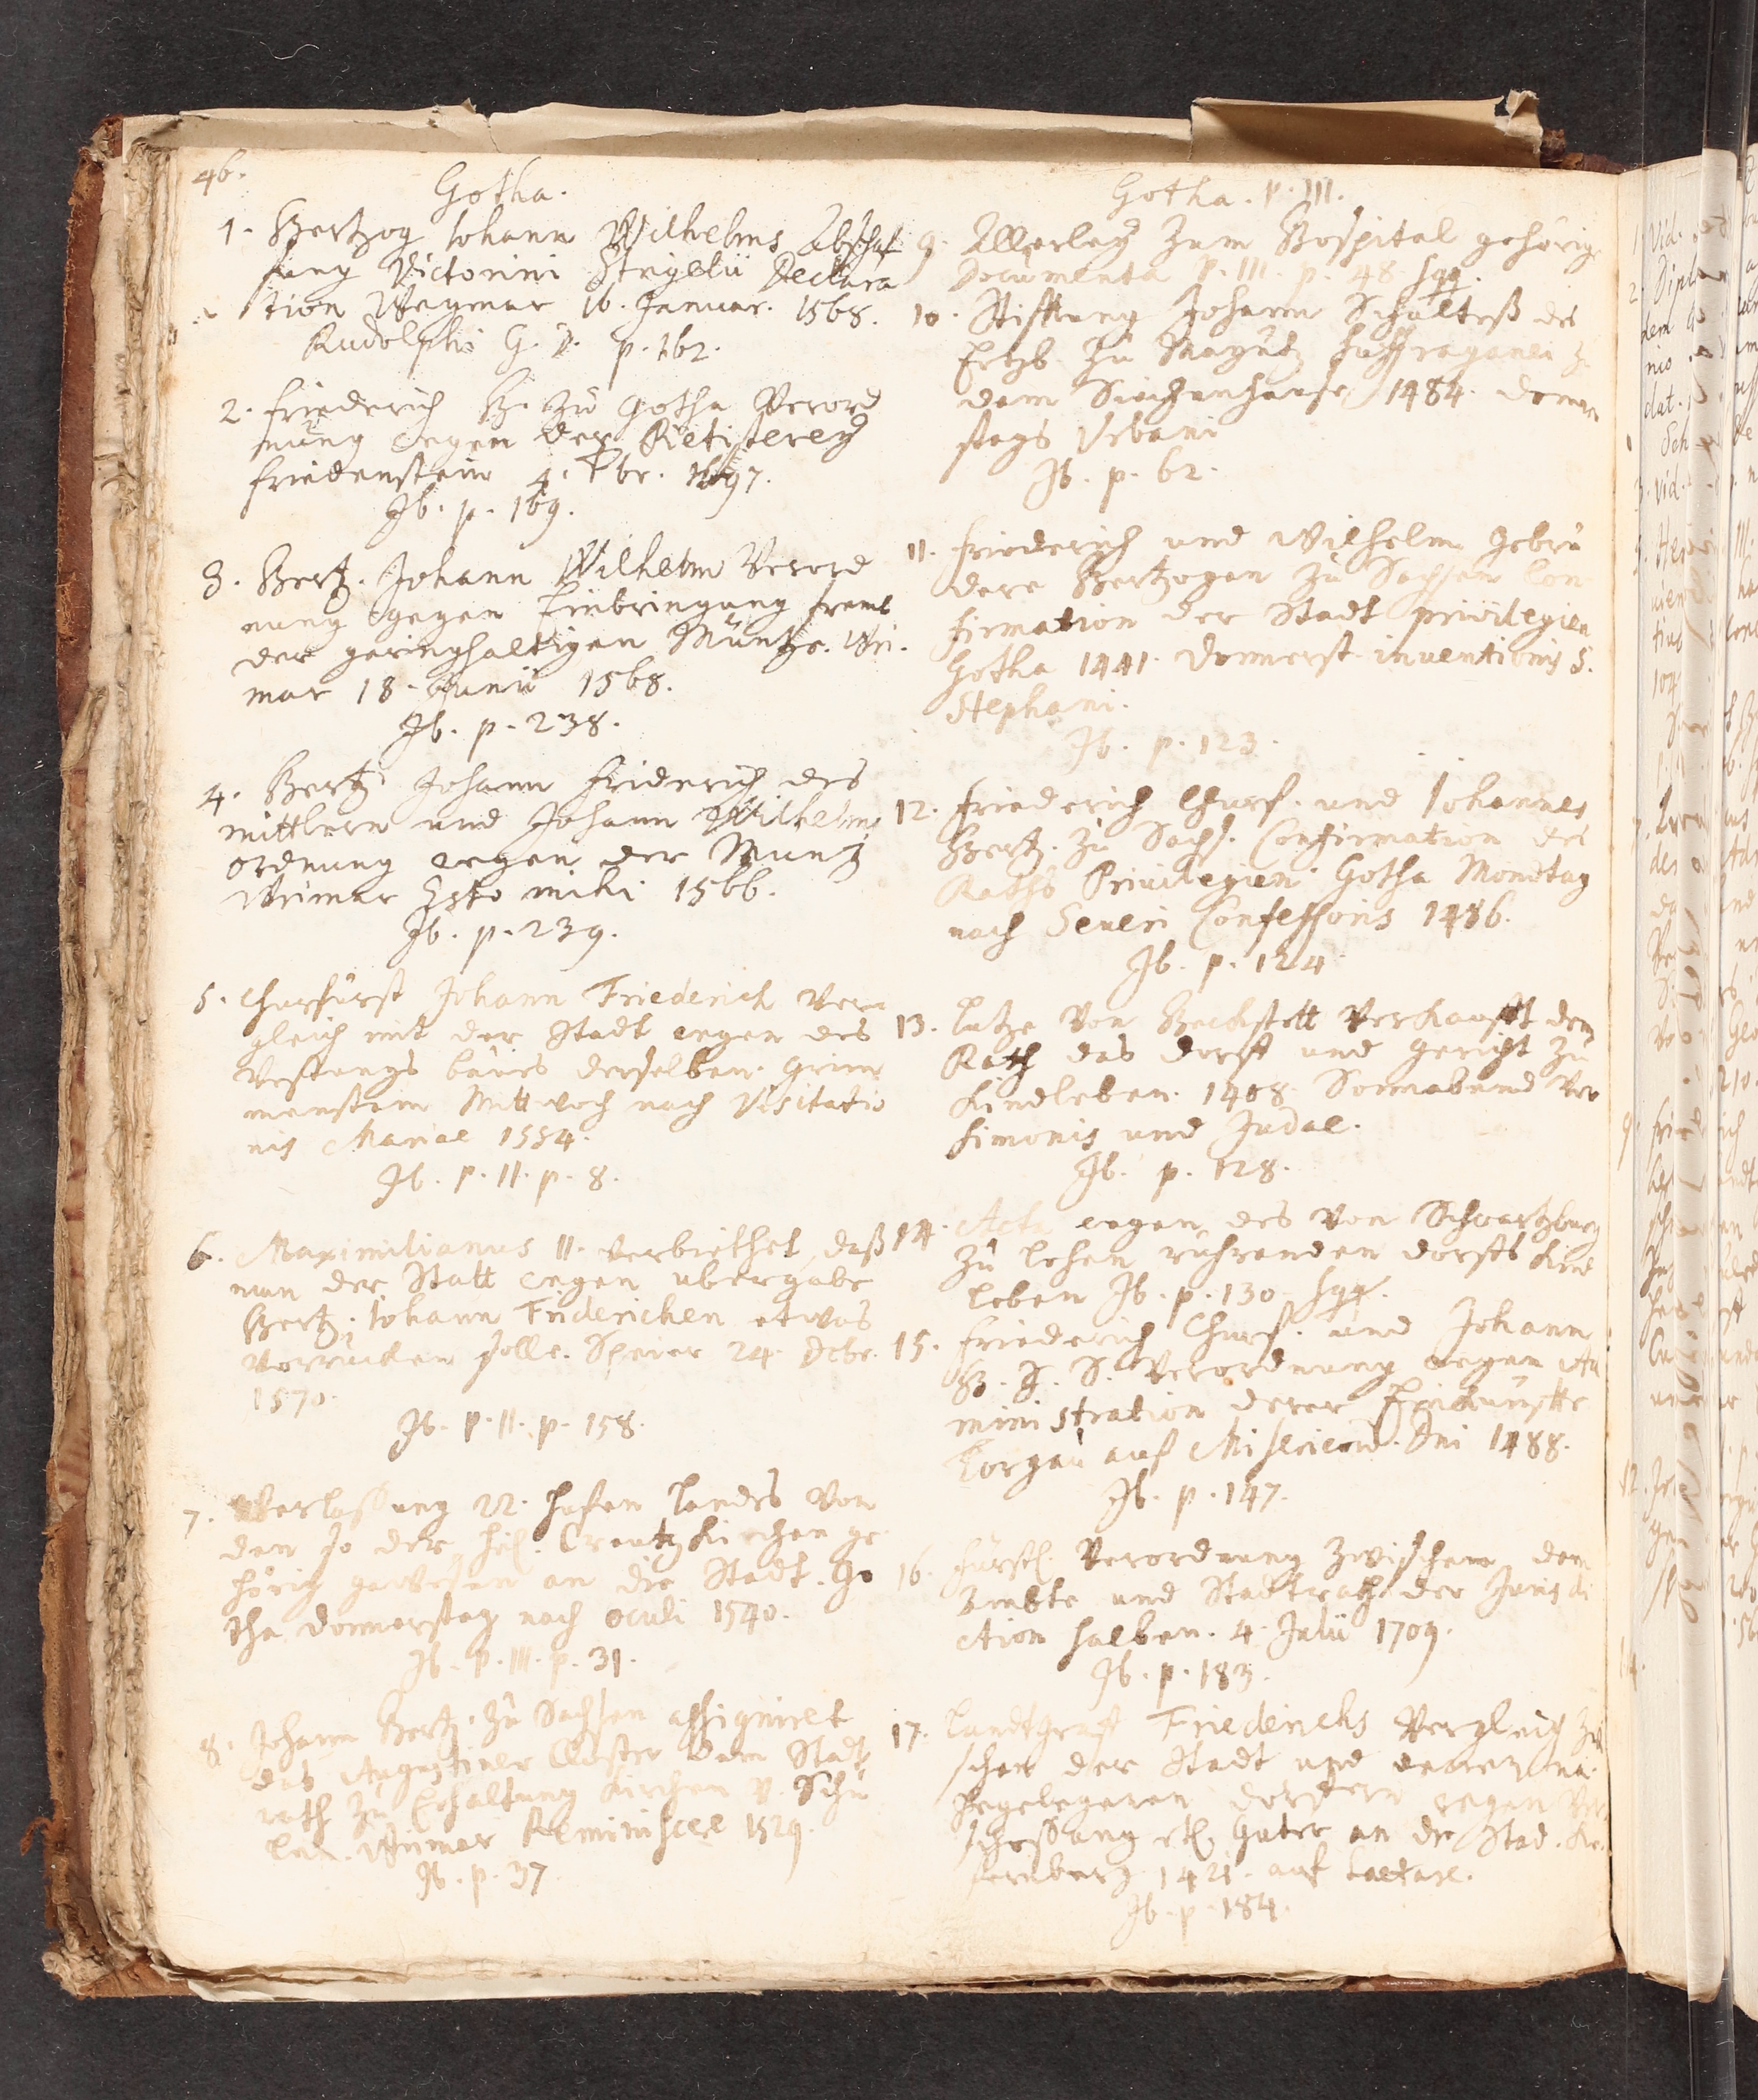 46.
Gotha.
1. Hertzog Johann Wilhelms Abschaf
fung Victorini Strigelii Declara
tion Weymar 16. Januar. 1568.
Rudolphi G. D. p. 162.
2. Friederich H. zu Gotha Verord
nung wegen der Pietisterey
Friedenstein 4. Fbr. 1697.
Ib. p. 169.
3. Hertz. Johann Wilhelm Verord
nung gegen Einbringung fremb
der geringhaltigen Müntze. Wei
mar 18. Junii 1568.
Ib. p. 238.
4. Hertz. Johann Friderich des
mittlern und Johann Wilhelms
ordnung wegen der Muntz
Weimar Esto mihi 1566.
Ib. p. 239.
5. Churfürst Johann Friederich Ver
gleich mit der Stadt wegen des
Vestungs baues derselben. Grim
menstein Mittwoch nach Visitatio
nis Mariae 1554.
Ib. P. II. p. 8.
6. Maximilianus II. verbiethet, daß
man der Statt wegen ubergabe
Hertz. Johann Friderichen etwas
vorrucken solle. Speier 24. Octbr.
1570.
Ib. P. II. p. 158.
7. Verlassung 22. hufen Landes von
den so der heil. Creutz Kirchen ge
hörig gewesen an die Stadt. Go
tha Donnerstag nach oculi 1540.
Ib. P. III. p. 31.
8. Johann Hertz. zu Sachsen assigniret
das Augustiner Closter dem Stadt
rath zu Erhaltung Kirchen v. Schu
len. Weimar Reminiscere 1529.
Ib. p. 37.
Gotha. P. III.
9. Allerley zum Hospital gehörige
Documenta P. III. p. 48 sqq.
10. Stifftung Johann Schulteß des
Ertzb. zu Mayntz suffraganei zu
dem Siechenhause 1484. Donner
stags Urbani
Ib. p. 62.
11. Friederich und Wilhelm Gebrü
dere Hertzogen zu Sachsen Con
firmation der Stadt privilegien
Gotha 1441. Donnerst. inventionis S.
Stephani.
Ib. p. 123.
12. Friederich Churf. und Johannes
Hertz. zu Sachs. Confirmation des
Raths Privilegien Gotha Montag
nach Severi Confessoris 1486.
Ib. p. 124.
13. Lutze von verkaufft dem
Rath das dorff und Gericht zu
Kindleben. 1408 Sonnabend vor
Simonis und Judae.
Ib. p. 128.
14. Acta wegen des von Schwartzburg
zu Lehen rührenden dorffs Kind
leben Ib. p. 130 sqq.
15. Friederich Churf. und Johann
H. z. S. Verordnung wegen Ad
ministration derer Einkunffte
Torgau auf Misericord. Dni 1488.
Ib. p. 147.
16. Fürstl. Verordnung zwischen dem
Ambte und Stadtrath der Jurisdi
ction halben. 4. Julii 1709.
Ib. p. 183.
17. Landtgraff Friederichs Vergleich zwi
schen der Stadt und denen na
hegelegenen dorffern wegen Ver
schossung etl. Guter an die Stad.
1421. auf Laetare.
Ib. p. 184.